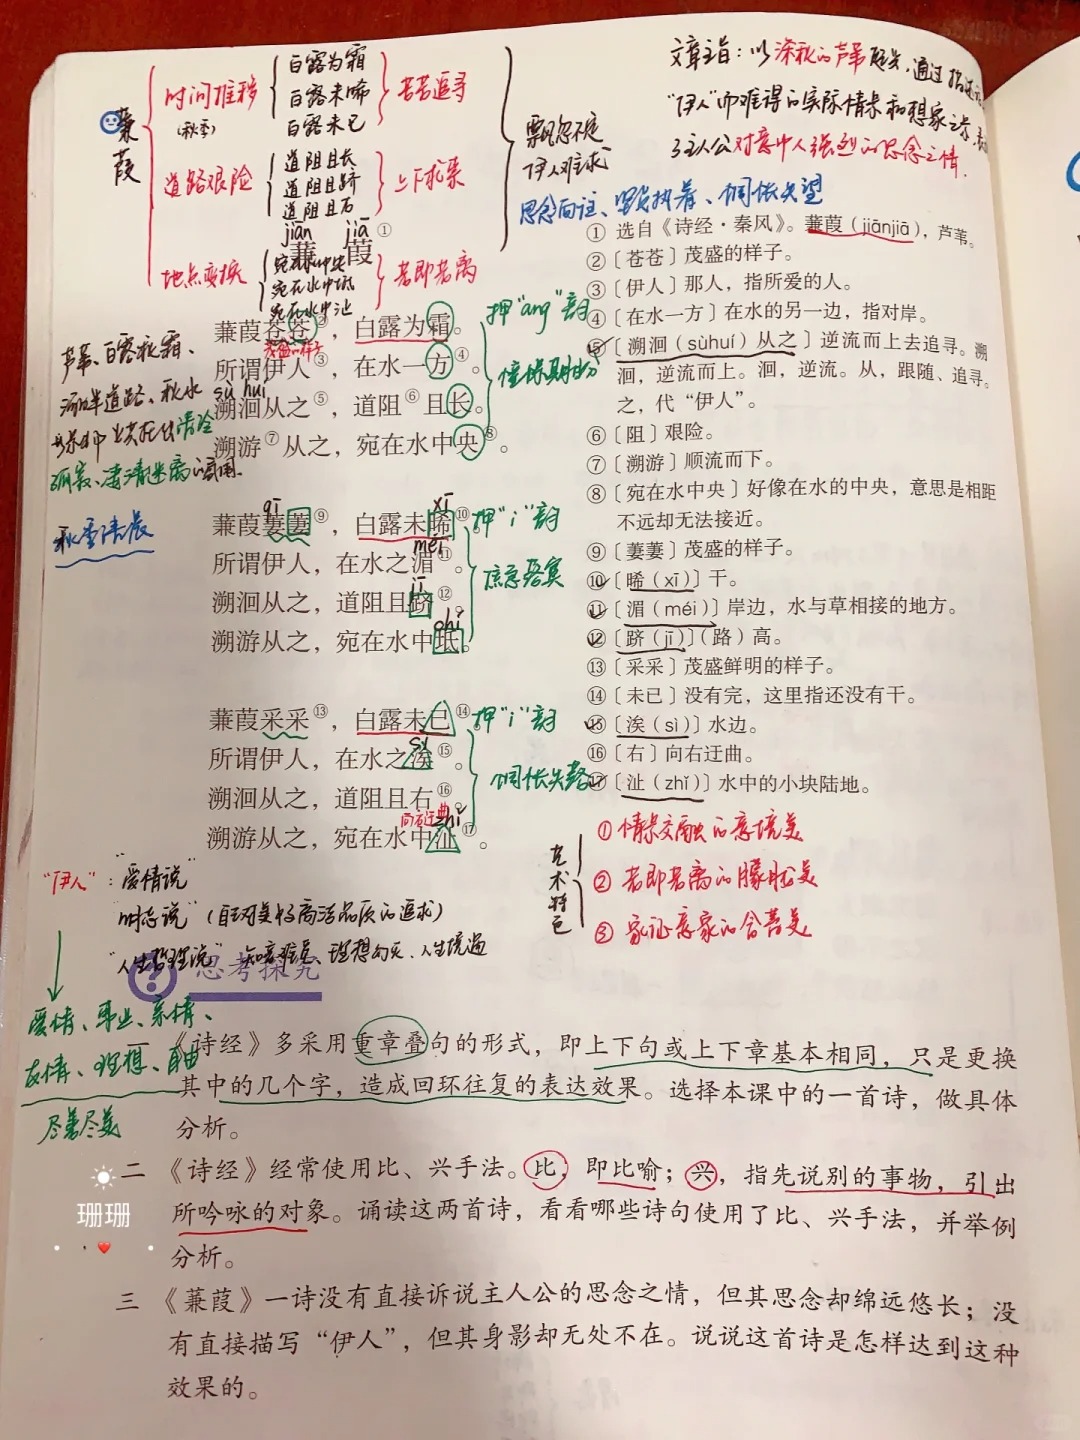 蒹葭
时间推移
(秋季)
白露为霜
白露未晞
白露未已
苦苦追寻
道路艰险
道阻且长
道阻且跻
道阻且右
上下求索
地点变换
宛在水中央
宛在水中坻
宛在水中沚
若即若离
飘忽不定
伊人难求
文章主旨：以深秋的芦苇起兴，通过描述
“伊人”的难得的实际情景和想象之景，表
了主人公对意中人强烈的思念之情．
思念向往、坚贞执着、惆怅失望
jiān jiā
蒹 葭①
蒹葭苍苍②，白露为霜。
茂盛的样子
所谓伊人③，在水一方④。
sù huí
溯洄从之⑤，道阻⑥且长。
溯游⑦从之，宛在水中央⑧。
押“ang”韵
憧憬期盼
芦苇、白露秋霜、
道路、秋水
清冷
秋季清晨
qī xī
蒹葭萋萋⑨，白露未晞⑩。
méi
所谓伊人，在水之湄⑪。
jī
溯洄从之，道阻且跻⑫。
chí
溯游从之，宛在水中坻。
押“i”韵
蒹葭采采⑬，白露未已⑭
sì
所谓伊人，在水之涘⑮。
溯洄从之，道阻且右⑯。
向右迂曲
zhǐ
溯游从之，宛在水中沚⑰。
押“i”韵
惆怅失落
① 选自《诗经·秦风》。蒹葭（jiānjiā），芦苇。
②〔苍苍〕茂盛的样子。
③〔伊人〕那人，指所爱的人。
④〔在水一方〕在水的另一边，指对岸。
⑤〔溯洄（sùhuí）从之〕逆流而上去追寻。溯
洄，逆流而上。洄，逆流。从，跟随、追寻。
之，代“伊人”。
⑥〔阻〕艰险。
⑦〔溯游〕顺流而下。
⑧〔宛在水中央〕好像在水的中央，意思是相距
不远却无法接近。
⑨〔萋萋〕茂盛的样子。
⑩〔晞（xī）〕干。
⑪〔湄（méi）〕岸边，水与草相接的地方。
⑫〔跻（jī）〕（路）高。
⑬〔采采〕茂盛鲜明的样子。
⑭〔未已〕没有完，这里指还没有干。
⑮〔涘（sì）〕水边。
⑯〔右〕向右迂曲。
⑰〔沚（zhǐ）〕水中的小块陆地。
艺术特色
①情景交融的意境美
②若即若离的朦胧美
③象征意象的含蓄美
“伊人”：“爱情说”
“明志说”（自对美好高洁品质的追求）
“人生哲理说” 知音难觅、理想幻灭、人生境遇
爱情、事业、亲情、
友情、理想、自由
尽善尽美
思考探究
一 《诗经》多采用重章叠句的形式，即上下句或上下章基本相同，只是更换
其中的几个字，造成回环往复的表达效果。选择本课中的一首诗，做具体
分析。
二 《诗经》经常使用比、兴手法。比，即比喻；兴，指先说别的事物，引出
所吟咏的对象。诵读这两首诗，看看哪些诗句使用了比、兴手法，并举例
分析。
三 《蒹葭》一诗没有直接诉说主人公的思念之情，但其思念却绵远悠长；没
有直接描写“伊人”，但其身影却无处不在。说说这首诗是怎样达到这种
效果的。
珊珊